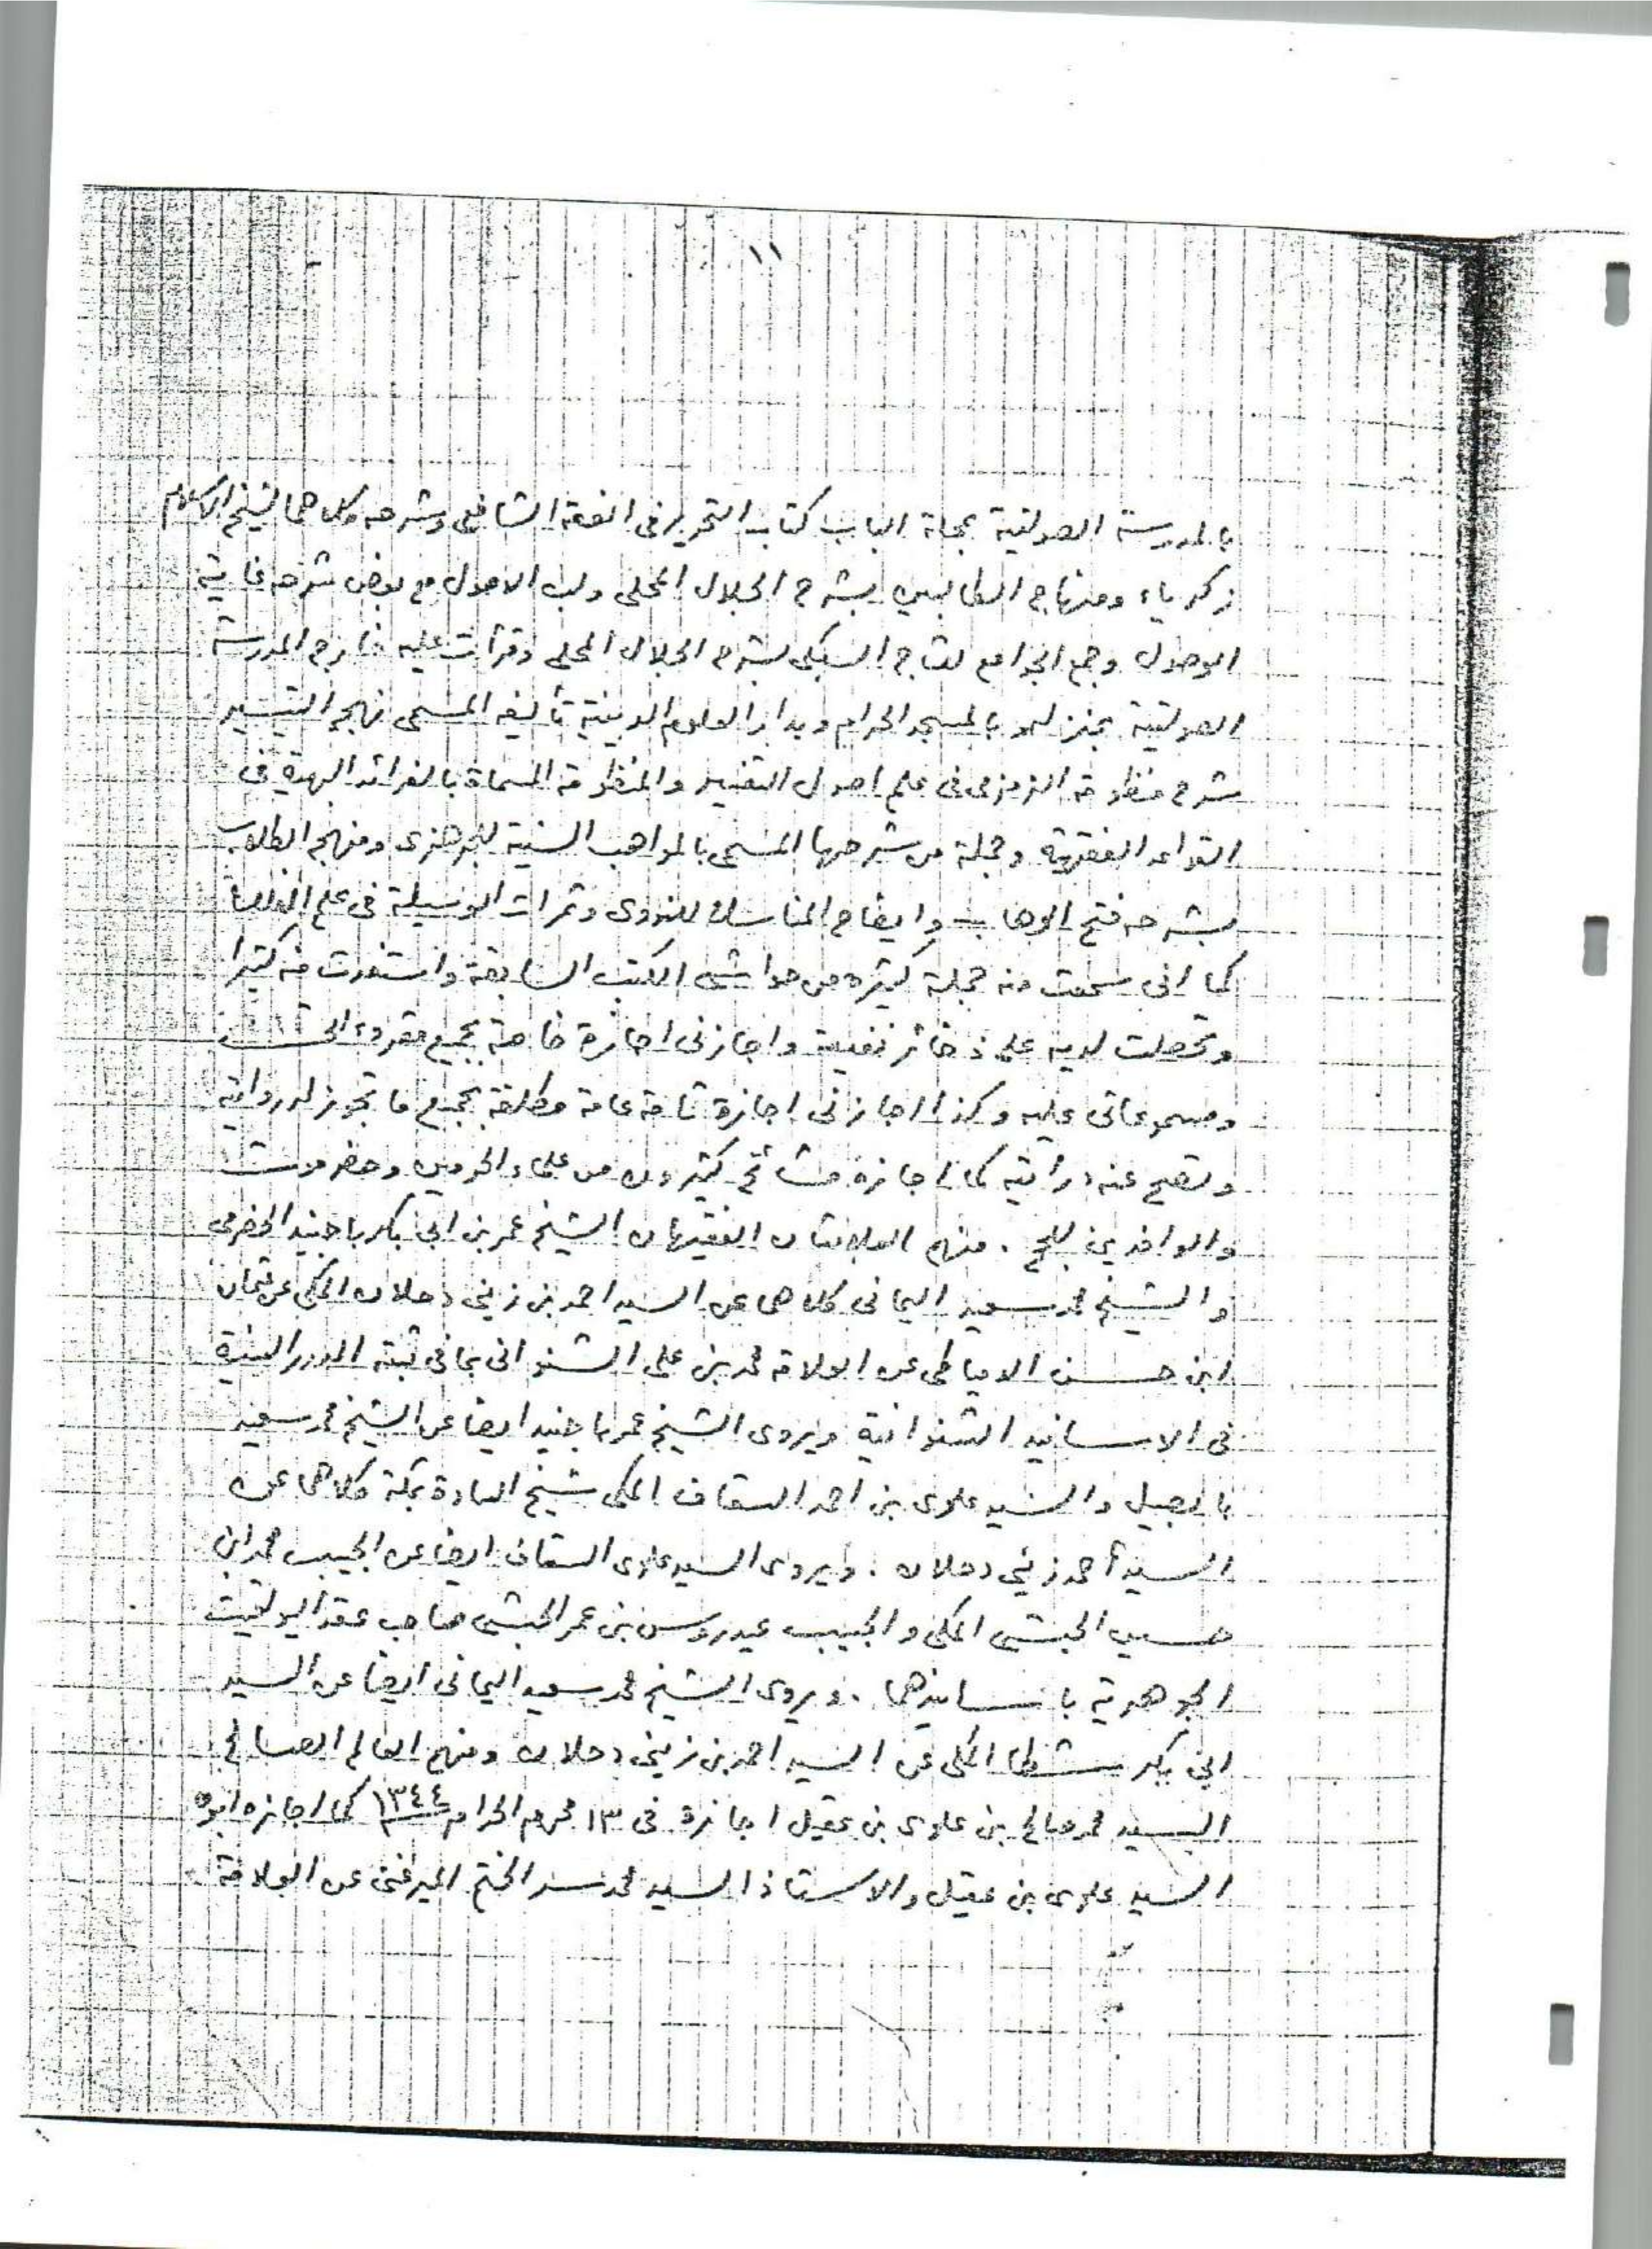 ١١
بالمدرسة الصولتية بمحلة الباب كتاب التحرير فى الفقه الشافعى وشرحه وكلاهما لشيخ الاسلام
زكرياء ومنهاج الطالبين بشرح الجلال المحلى ولب الاصول مع بعض شرحه غاية
الوصول وجمع الجوامع لتاج السبكى بشرح الجلال المحلى وقرأت عليه خارج المدرسة
الصولتية بمنزله وبالمسجد الحرام وبدار العلوم الدينية تأليفه المسمى نهج التيسير
شرح منظومة الزمزمى فى علم اصول التفسير والمنظومة المسماة بالفرائد البهية فى
القواعد الفقهية وجملة من شرحها المسمى بالمواهب السنية للجرهزى ومنهج الطلاب
بشرحه فتح الوهاب وايضاح المناسك للنووى وثمرات الوسيلة فى علم الفلك
كما انى سمعت منه جملة كثيرة من حواشى الكتب السابقة واستفدت منه كثيرا
وتحصلت لديه على ذخائر نفيسة واجازنى اجازة خاصة بجميع مقروءاتى
ومسموعاتى عليه وكذا اجازنى اجازة تامة عامة مطلقة بجميع ما تجوز له روايته
وتصح عنه درايته كما اجازه مشائخ كثيرون من علماء الحرمين وحضرموت
والوافدين للحج . منهم العلامتان الفقيهان الشيخ عمر بن ابى بكر باجنيد الحضرمى
والشيخ محمد سعيد اليمانى كلاهما عن السيد احمد بن زينى دحلان المكى عن عثمان
ابن حسن الدمياطى عن العلامة محمد بن على الشنوانى بما فى ثبته الدرر السنية
فى الاسانيد الشنوانية ويروى الشيخ عمر باجنيد ايضا عن الشيخ محمد سعيد
بابصيل والسيد علوى بن احمد السقاف المكى شيخ السادة بمكة كلاهما عن
السيد أحمد زينى دحلان . ويروى السيد علوى السقاف ايضا عن الحبيب محمد ابن
حسين الحبشى المكى والحبيب عيدروس بن عمر الحبشى صاحب عقد اليواقيت
الجوهرية باسانيدهما . ويروى الشيخ محمد سعيد اليمانى ايضا عن السيد
ابى بكر شطا المكى عن السيد احمد بن زينى دحلان ومنهم العالم الصالح
السيد محمد صالح بن علوى بن عقيل اجازة فى ١٣ محرم الحرام ١٣٤٤ كما اجازه ابوه
السيد علوى بن عقيل والاستاذ السيد محمد سر الختم الميرغنى عن العلامة